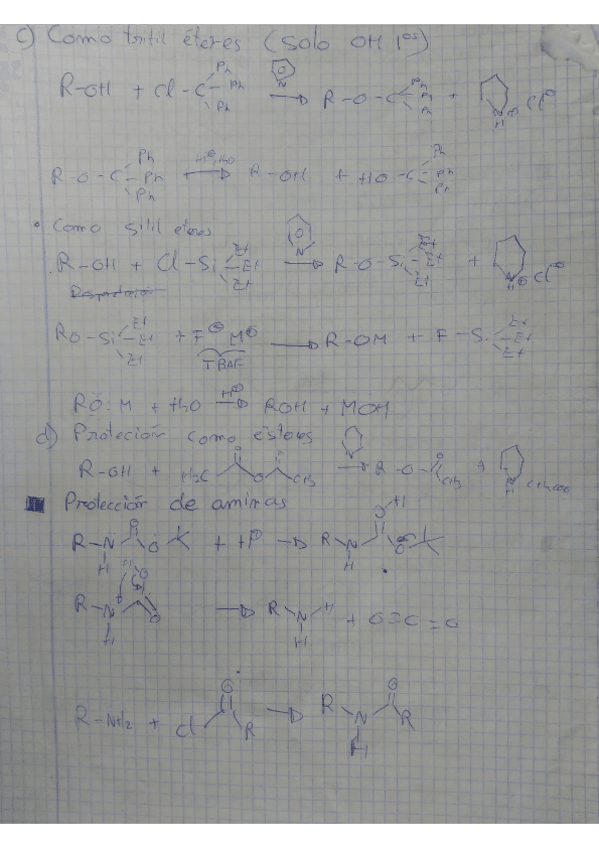 c) Como tritil éteres (solo OH 1os)
R-OH + Cl-C Ph Ph Ph → R-O-C Ph Ph Ph + N H ⊕ Cl⊖
R-O-C Ph Ph Ph → R-OH + HO-C Ph Ph Ph
• Como Silil éteres
R-OH + Cl-Si Et Et Et → R-O-Si Et Et Et + N H ⊕ Cl⊖
RO-Si Et Et Et + F⊖ M⊕ → R-OM + F-Si Et Et Et
TBAF
RO:M + H2O H⊕ → ROH + MOH
d) Protección como ésteres
R-OH + H3C O O O CH3 → R-O O CH3 + N H CH3COO
Protección de aminas
R-N H O O + H⊕ → R-N H O H O
R-N H H O O → R-N H H + O=C=O
R-NH2 + Cl O R → R N H O R